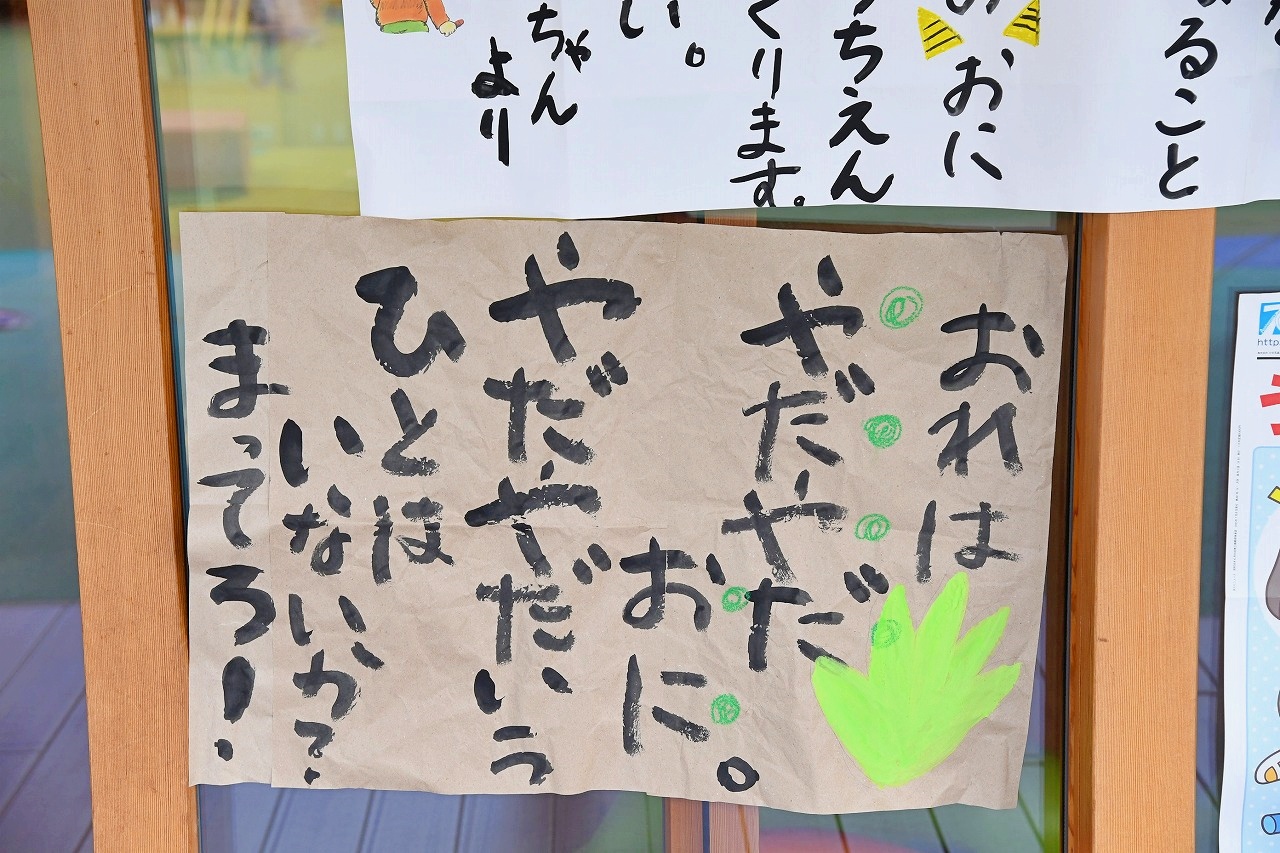 ること
おに
ちえん
くります。
い。
ちゃん
より
おれは
やだやだ
おに。
やだやだいう
ひとは
いないか？
まってろ！
http